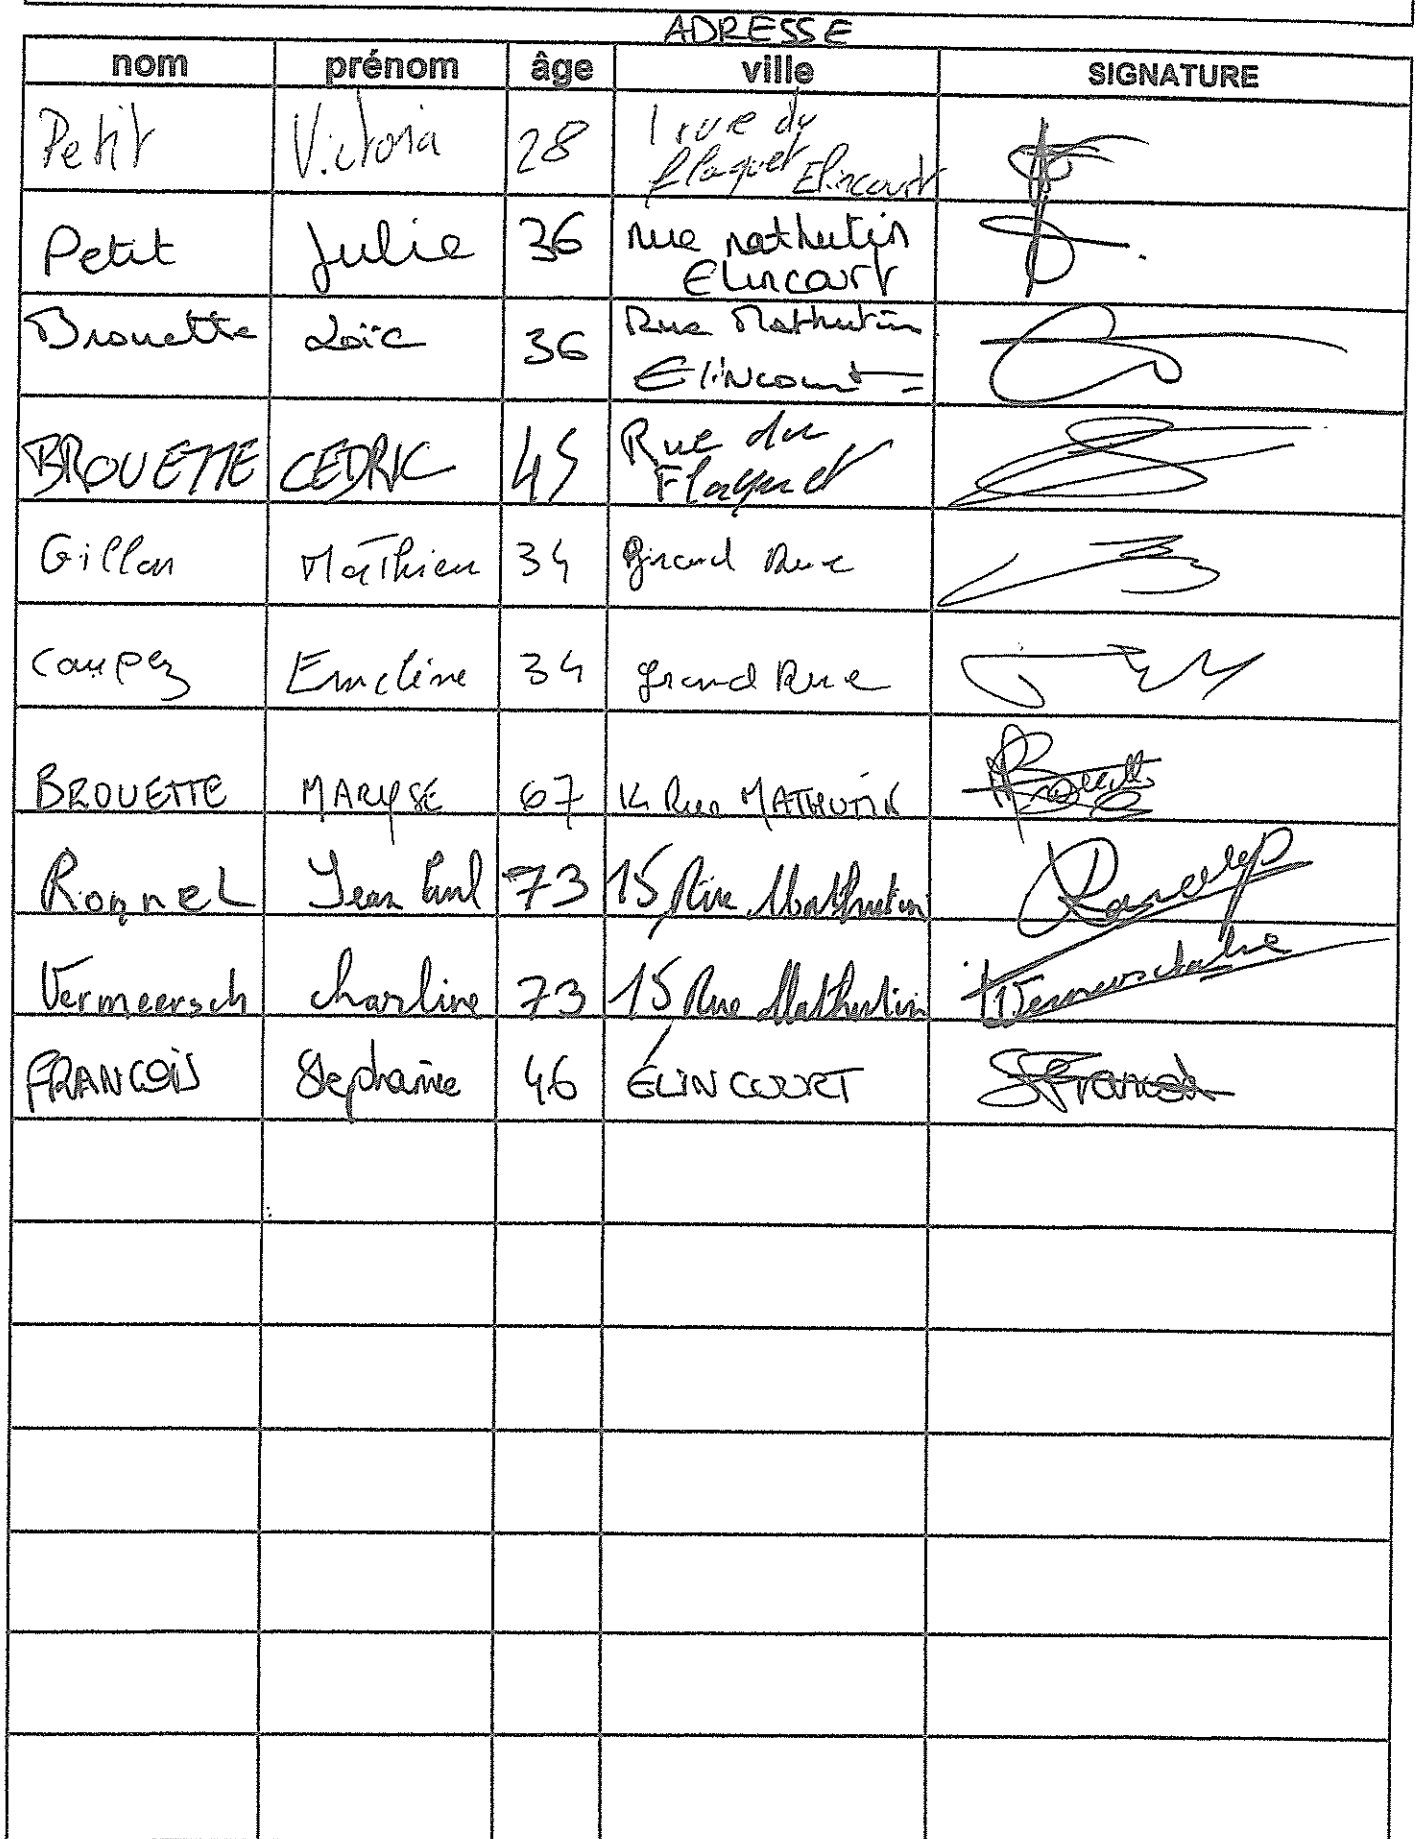 ADRESSE
nom prénom âge ville SIGNATURE
Petit Victoria 28 1 rue du
flaquet Elincourt
Petit Julie 36 rue mathutin
Elincourt
Brouette Loïc 36 Rue Mathutin
Elincourt
BROUETTE CEDRIC 45 Rue du
Flaquet
Gillon Mathieu 34 Grand Rue
Coupez Emeline 34 grand Rue
BROUETTE MARYSE 67 Rue MATHUTIN
Ronnel Jean Paul 73 15 Rue Mathutin
Vermeersch charline 73 15 Rue Mathutin
FRANÇOIS Stephanie 46 ÉLINCOURT SFrancois